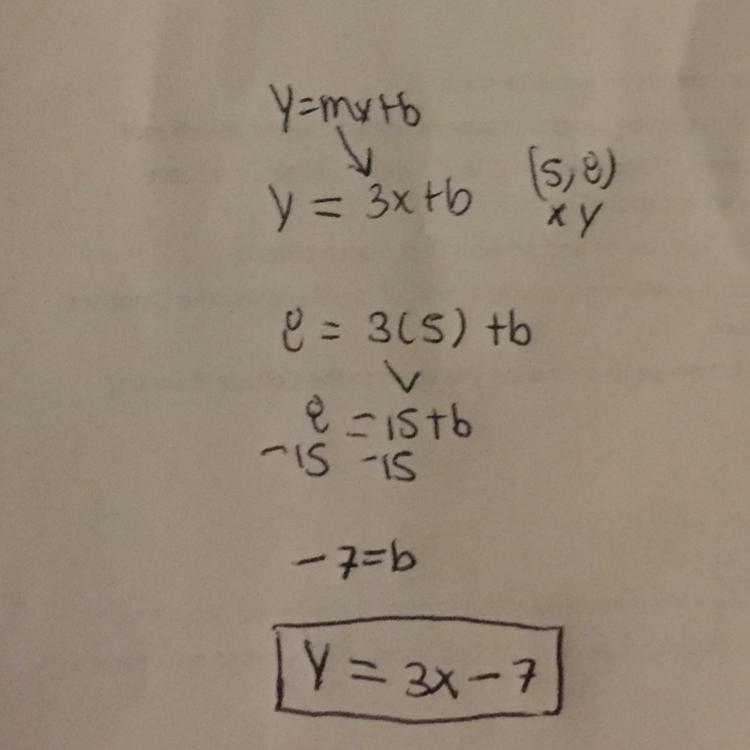 y=mx+b
y = 3x+b (5,8)
x y
8 = 3(5) +b
8 = 15+b
-15 -15
-7=b
y = 3x-7